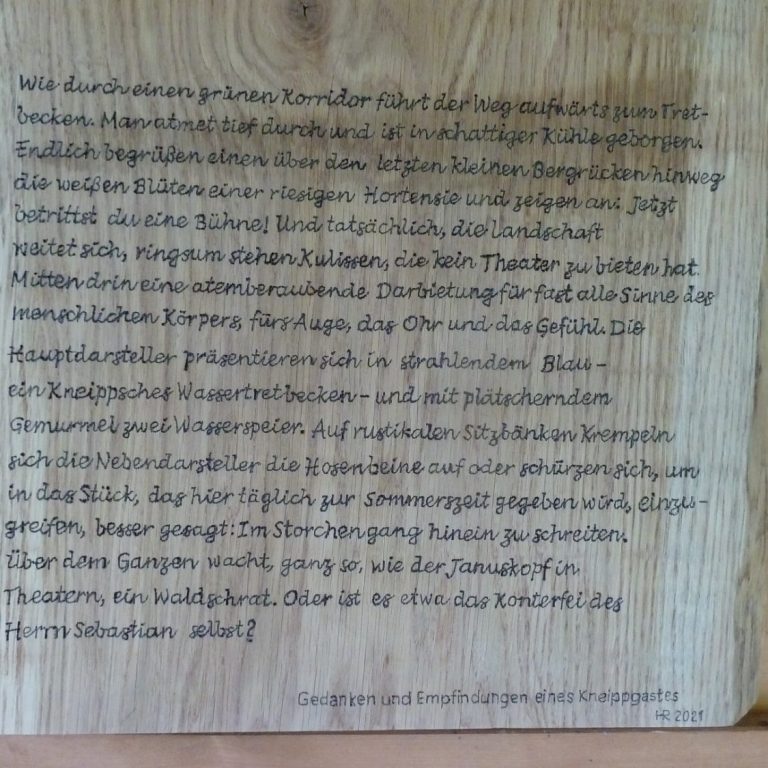 Wie durch einen grünen Korridor führt der Weg aufwärts zum Tret-
becken. Man atmet tief durch und ist in schattiger Kühle geborgen.
Endlich begrüßen einen über den letzten kleinen Bergrücken hinweg
die weißen Blüten einer riesigen Hortensie und zeigen an: Jetzt
betrittst du eine Bühne! Und tatsächlich, die Landschaft
weitet sich, ringsum stehen Kulissen, die kein Theater zu bieten hat.
Mitten drin eine atemberaubende Darbietung für fast alle Sinne des
menschlichen Körpers, fürs Auge, das Ohr und das Gefühl. Die
Hauptdarsteller präsentieren sich in strahlendem Blau -
ein Kneippsches Wassertretbecken - und mit plätscherndem
Gemurmel zwei Wasserspeier. Auf rustikalen Sitzbänken Krempeln
sich die Nebendarsteller die Hosenbeine auf oder schürzen sich, um
in das Stück, das hier täglich zur Sommerszeit gegeben wird, einzu-
greifen, besser gesagt: Im Storchengang hinein zu schreiten.
Über dem Ganzen wacht, ganz so, wie der Januskopf in
Theatern, ein Waldschrat. Oder ist es etwa das Konterfei des
Herrn Sebastian selbst?
Gedanken und Empfindungen eines Kneippgastes
HR 2021